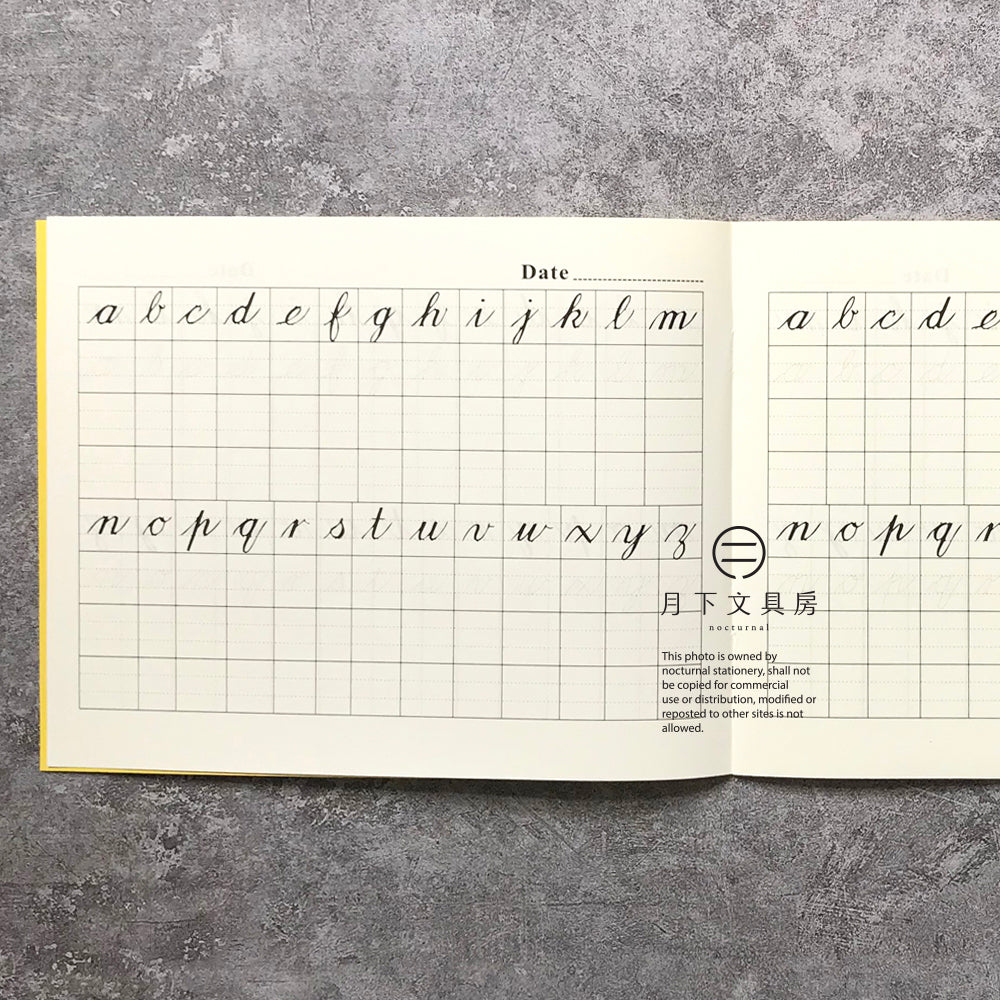 Date
a b c d e f g h i j k l m
n o p q r s t u v w x y z
a b c d e
n o p q r
月下文具房
nocturnal
This photo is owned by
nocturnal stationery, shall not
be copied for commercial
use or distribution, modified or
reposted to other sites is not
allowed.